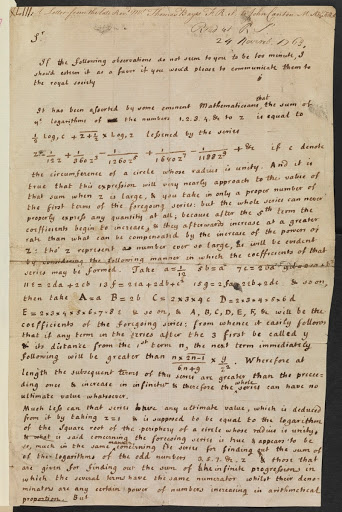 XLIII. A Letter from the late Revd. Mr. Thomas Bayes F.R.S. to John Canton M.A. F.R.S.
Read at R.S.
24 Novemb. 1763.
Sr.
If the following observations do not seem to you to be too minute, I
should esteem it as a favor if you would please to communicate them to
the royal society
It has been asserted by some eminent Mathematicians, that the sum of
ye logarithms of the numbers 1.2.3.4.&c to z is equal to
½ Log, c + z+½ × Log, z lessened by the series
z − 1/12z + 1/360z³ − 1/1260z⁵ + 1/1680z⁷ − 1/1188z⁹ + &c if c denote
the circumference of a circle whose radius is unity. And it is
true that this expression will very nearly approach to the value of
that sum when z is large, & you take in only a proper number of
the first terms of the foregoing series: but the whole series can never
properly express any quantity at all; because after the 5th term the
coefficients begin to increase, & they afterwards increase at a greater
rate than what can be compensated by the increase of the powers of
z tho' z represent a number ever so large, as will be evident
by considering the following manner in which the coefficients of that
series may be formed. Take a=1/12 5b=a² 7c=2ba
11e = 2da+2cb 13f = 2ea+2db+c² 15g = 2fa+2eb+2dc & so on,
then take A=a B=2b C=2×3×4c D=2×3×4×5×6d
E=2×3×4×5×6×7×8e & so on, & A,B,C,D,E,F, &c will be the
coefficients of the foregoing series: from whence it easily follows
that if any term in the series after the 3 first be called y
& its distance from the 1st term n, the next term immediately
following will be greater than n×2n−1/6n+9 × y/z². Wherefore at
length the subsequent terms of this series are greater than the prece-
ding ones & increase in infinitum & therefore the whole series can have no
ultimate value whatsoever.
Much less can that series have any ultimate value, which is deduced
from it by taking z=1 & is supposed to be equal to the logarithm
of the square root of the periphery of a circle whose radius is unity;
& what is said concerning the foregoing series is true & appears to be
so, much in the same manner, concerning the series for finding out the sum of
the logarithms of the odd numbers 3.5.7.&c. z & those that
are given for finding out the sum of the infinite progressions in
which the several terms have the same numerator whilst their deno-
minators are any certain power of numbers increasing in arithmetical
proportion. But